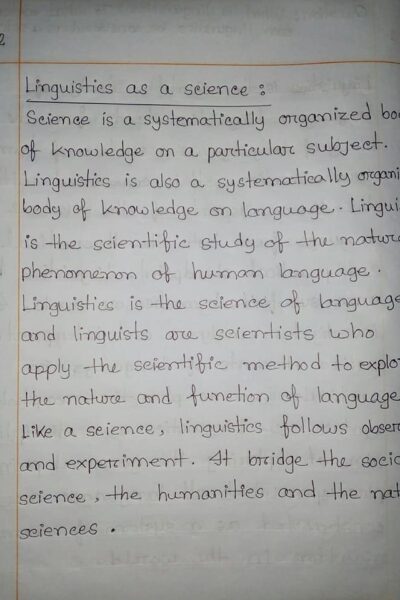 2
Linguistics as a science :
Science is a systematically organized bo
of knowledge on a particular subject.
Linguistics is also a systematically organi
body of knowledge on language. Lingui
is the scientific study of the nature
phenomenon of human language.
Linguistics is the science of language
and linguists are scientists who
apply the scientific method to explo
the nature and function of language
Like a science, linguistics follows obser
and experiment. It bridge the socia
science, the humanities and the nat
sciences.